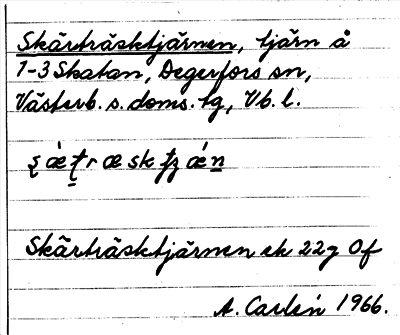 Skärträsktjärnen, tjärn å
1-3 Skatan, Degerfors sn,
Västerb. s. doms. tg, Vb. l.
Skärträsktjärnen ek 22g Of
A. Carlén 1966.